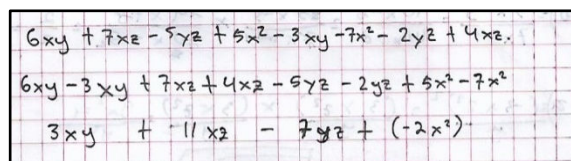 6xy + 7xz - 5yz + 5x² - 3xy - 7x² - 2yz + 4xz.
6xy - 3xy + 7xz + 4xz - 5yz - 2yz + 5x² - 7x²
3xy + 11xz - 7yz + (-2x²)